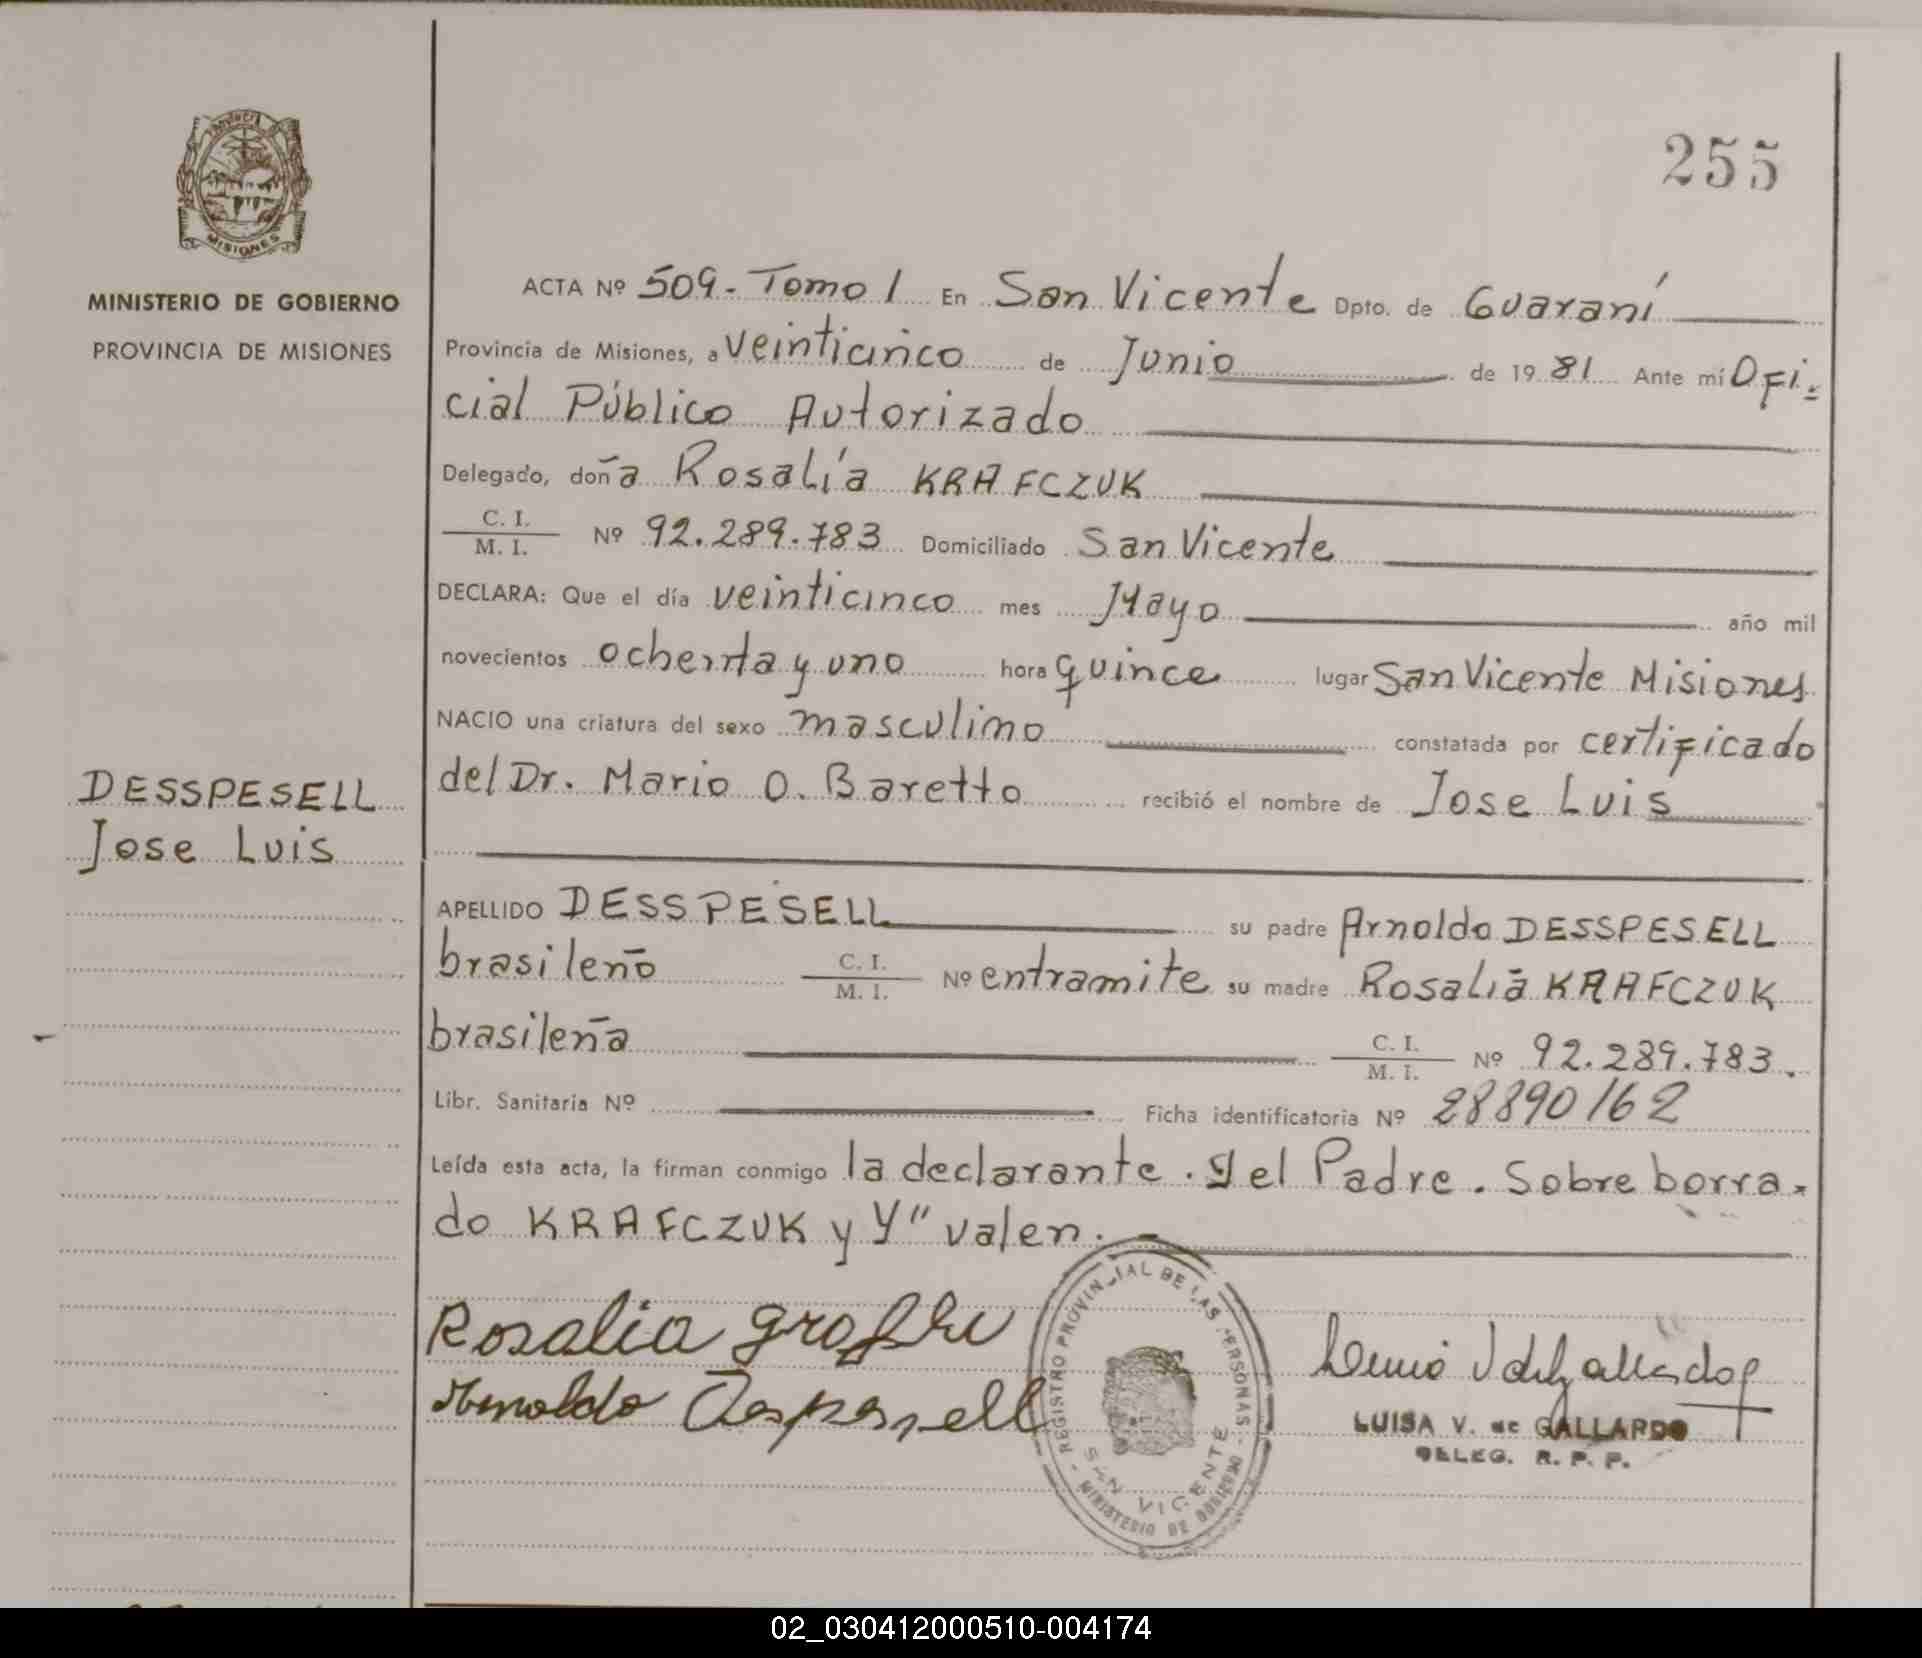 MISIONES
255
MINISTERIO DE GOBIERNO
PROVINCIA DE MISIONES
ACTA Nº 509.- Tomo I En San Vicente Dpto. de Guaraní
Provincia de Misiones, a veinticinco de Junio de 1981 Ante mí Ofi-
cial Público Autorizado
Delegado, doña Rosalía KRAFCZUK
C. I.
M. I. Nº 92.289.783 Domiciliado San Vicente
DECLARA: Que el día veinticinco mes Mayo año mil
novecientos ochenta y uno hora quince lugar San Vicente Misiones
NACIO una criatura del sexo masculino constatada por certificado
del Dr. Mario O. Baretto recibió el nombre de Jose Luis
DESSPESELL
Jose Luis
APELLIDO DESSPESELL su padre Arnoldo DESSPESELL
brasileño C. I. M. I. Nº entramite su madre Rosalia KRAFCZUK
brasileña C. I. M. I. Nº 92.289.783.
Libr. Sanitaria Nº Ficha identificatoria Nº 28890162
Leída esta acta, la firman conmigo la declarante. y el Padre. Sobre borra-
do KRAFCZUK y Y" valen.
Rosalia
Arnoldo Desspesell
REGISTRO PROVINCIAL DE LAS PERSONAS
SAN VICENTE
MINISTERIO DE GOBIERNO
LUISA V. de GALLARDO
DELEG. R. P. P.
02_030412000510-004174